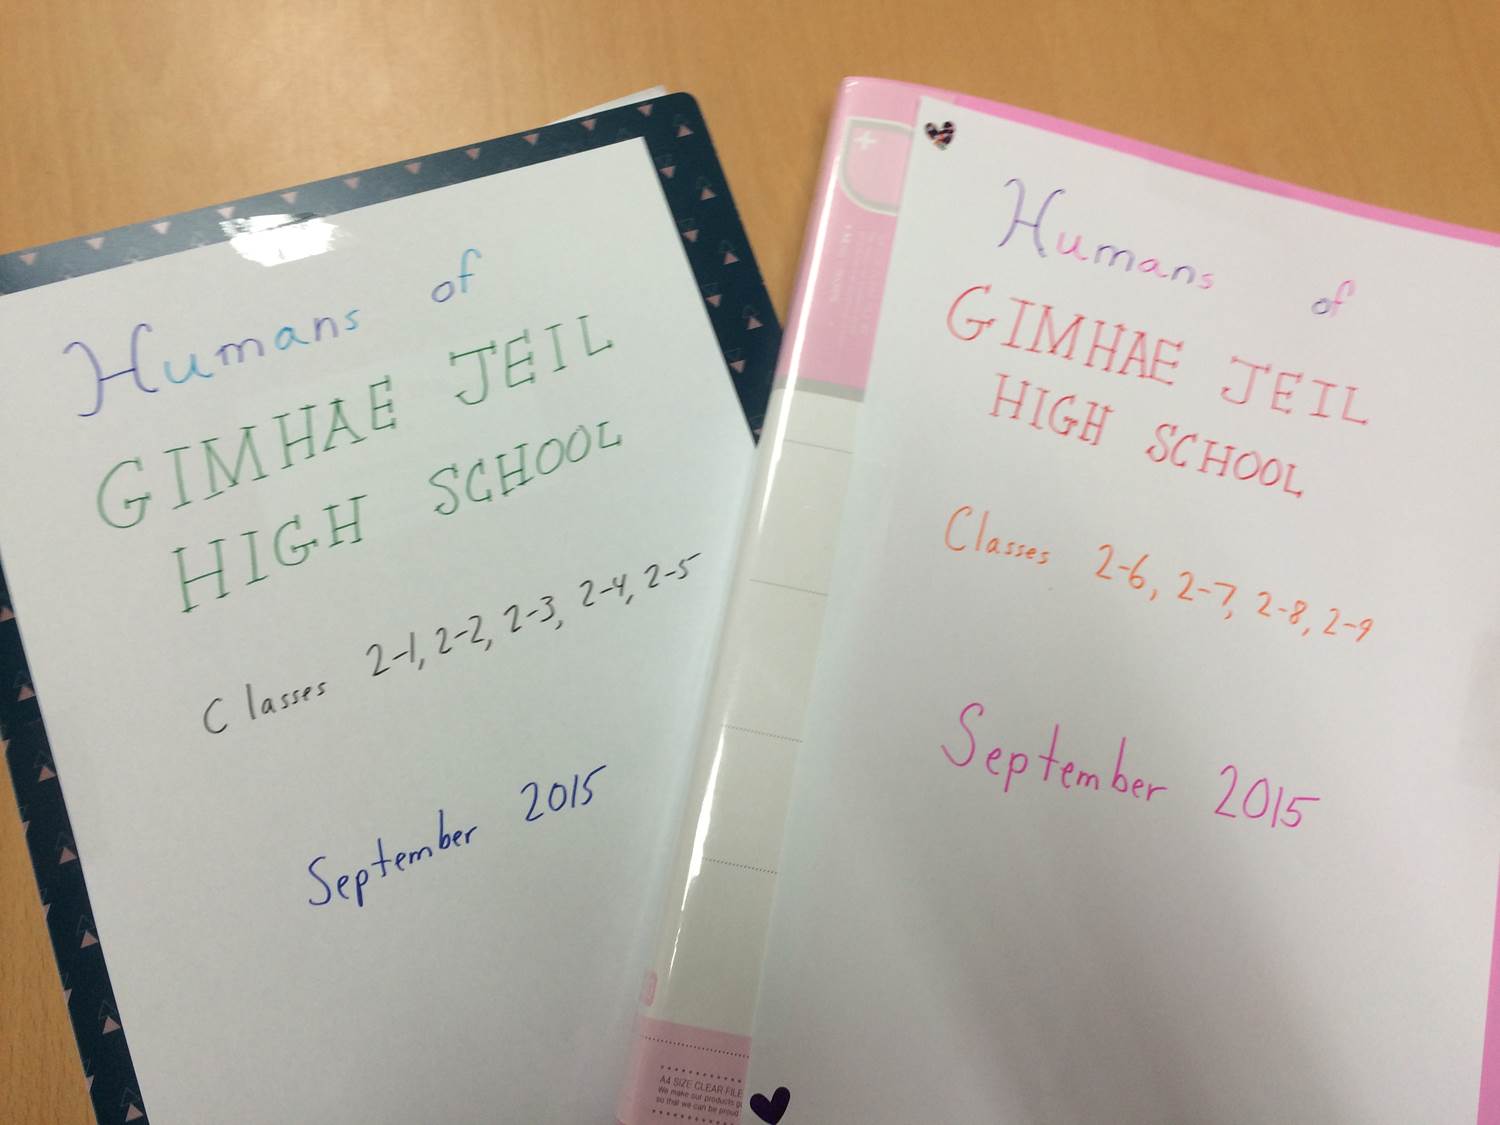 Humans of
GIMHAE JEIL
HIGH SCHOOL
Classes 2-1, 2-2, 2-3, 2-4, 2-5
September 2015
Humans of
GIMHAE JEIL
HIGH SCHOOL
Classes 2-6, 2-7, 2-8, 2-9
September 2015
A4 SIZE CLEAR FILE
We make our products
so that we can be proud